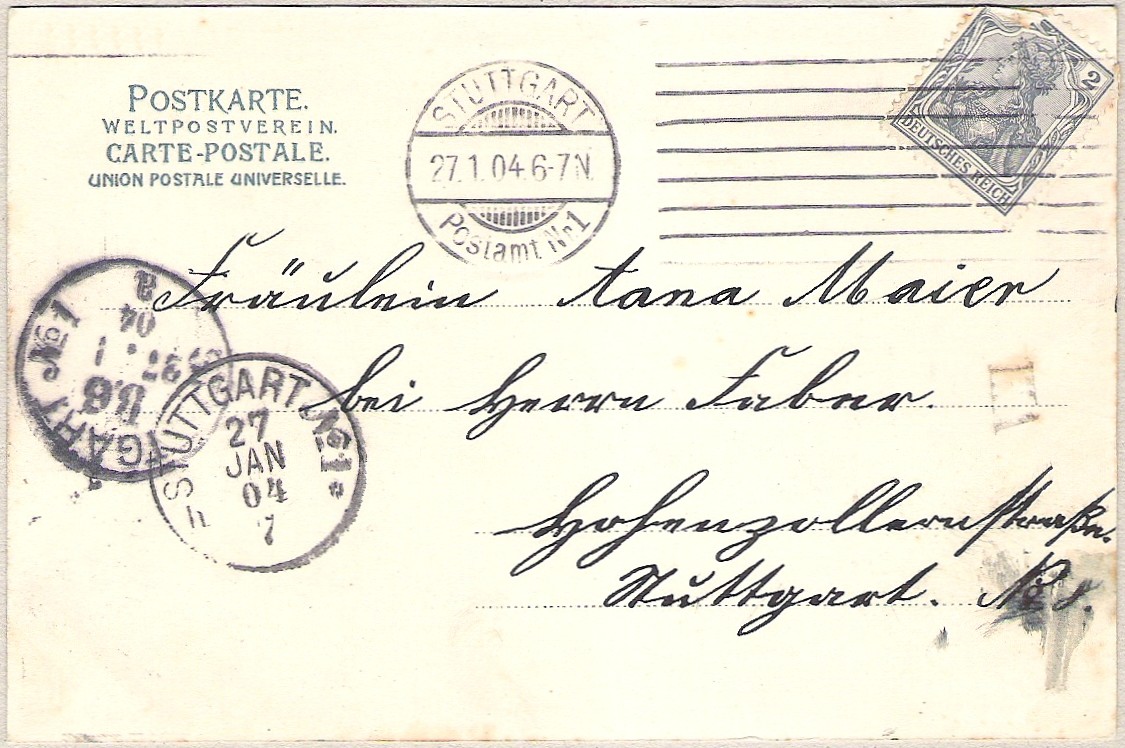 POSTKARTE.
WELTPOSTVEREIN.
CARTE-POSTALE.
UNION POSTALE UNIVERSELLE.
STUTTGART
27.1.04.6-7N.
Postamt Nr 1
2
DEUTSCHES REICH
Fräulein Anna Maier
bei Herrn Faber.
Hohenzollernstraße.
Stuttgart. No
STUTTGART No 1
27
JAN
04
7
GART No 1
27.1
04